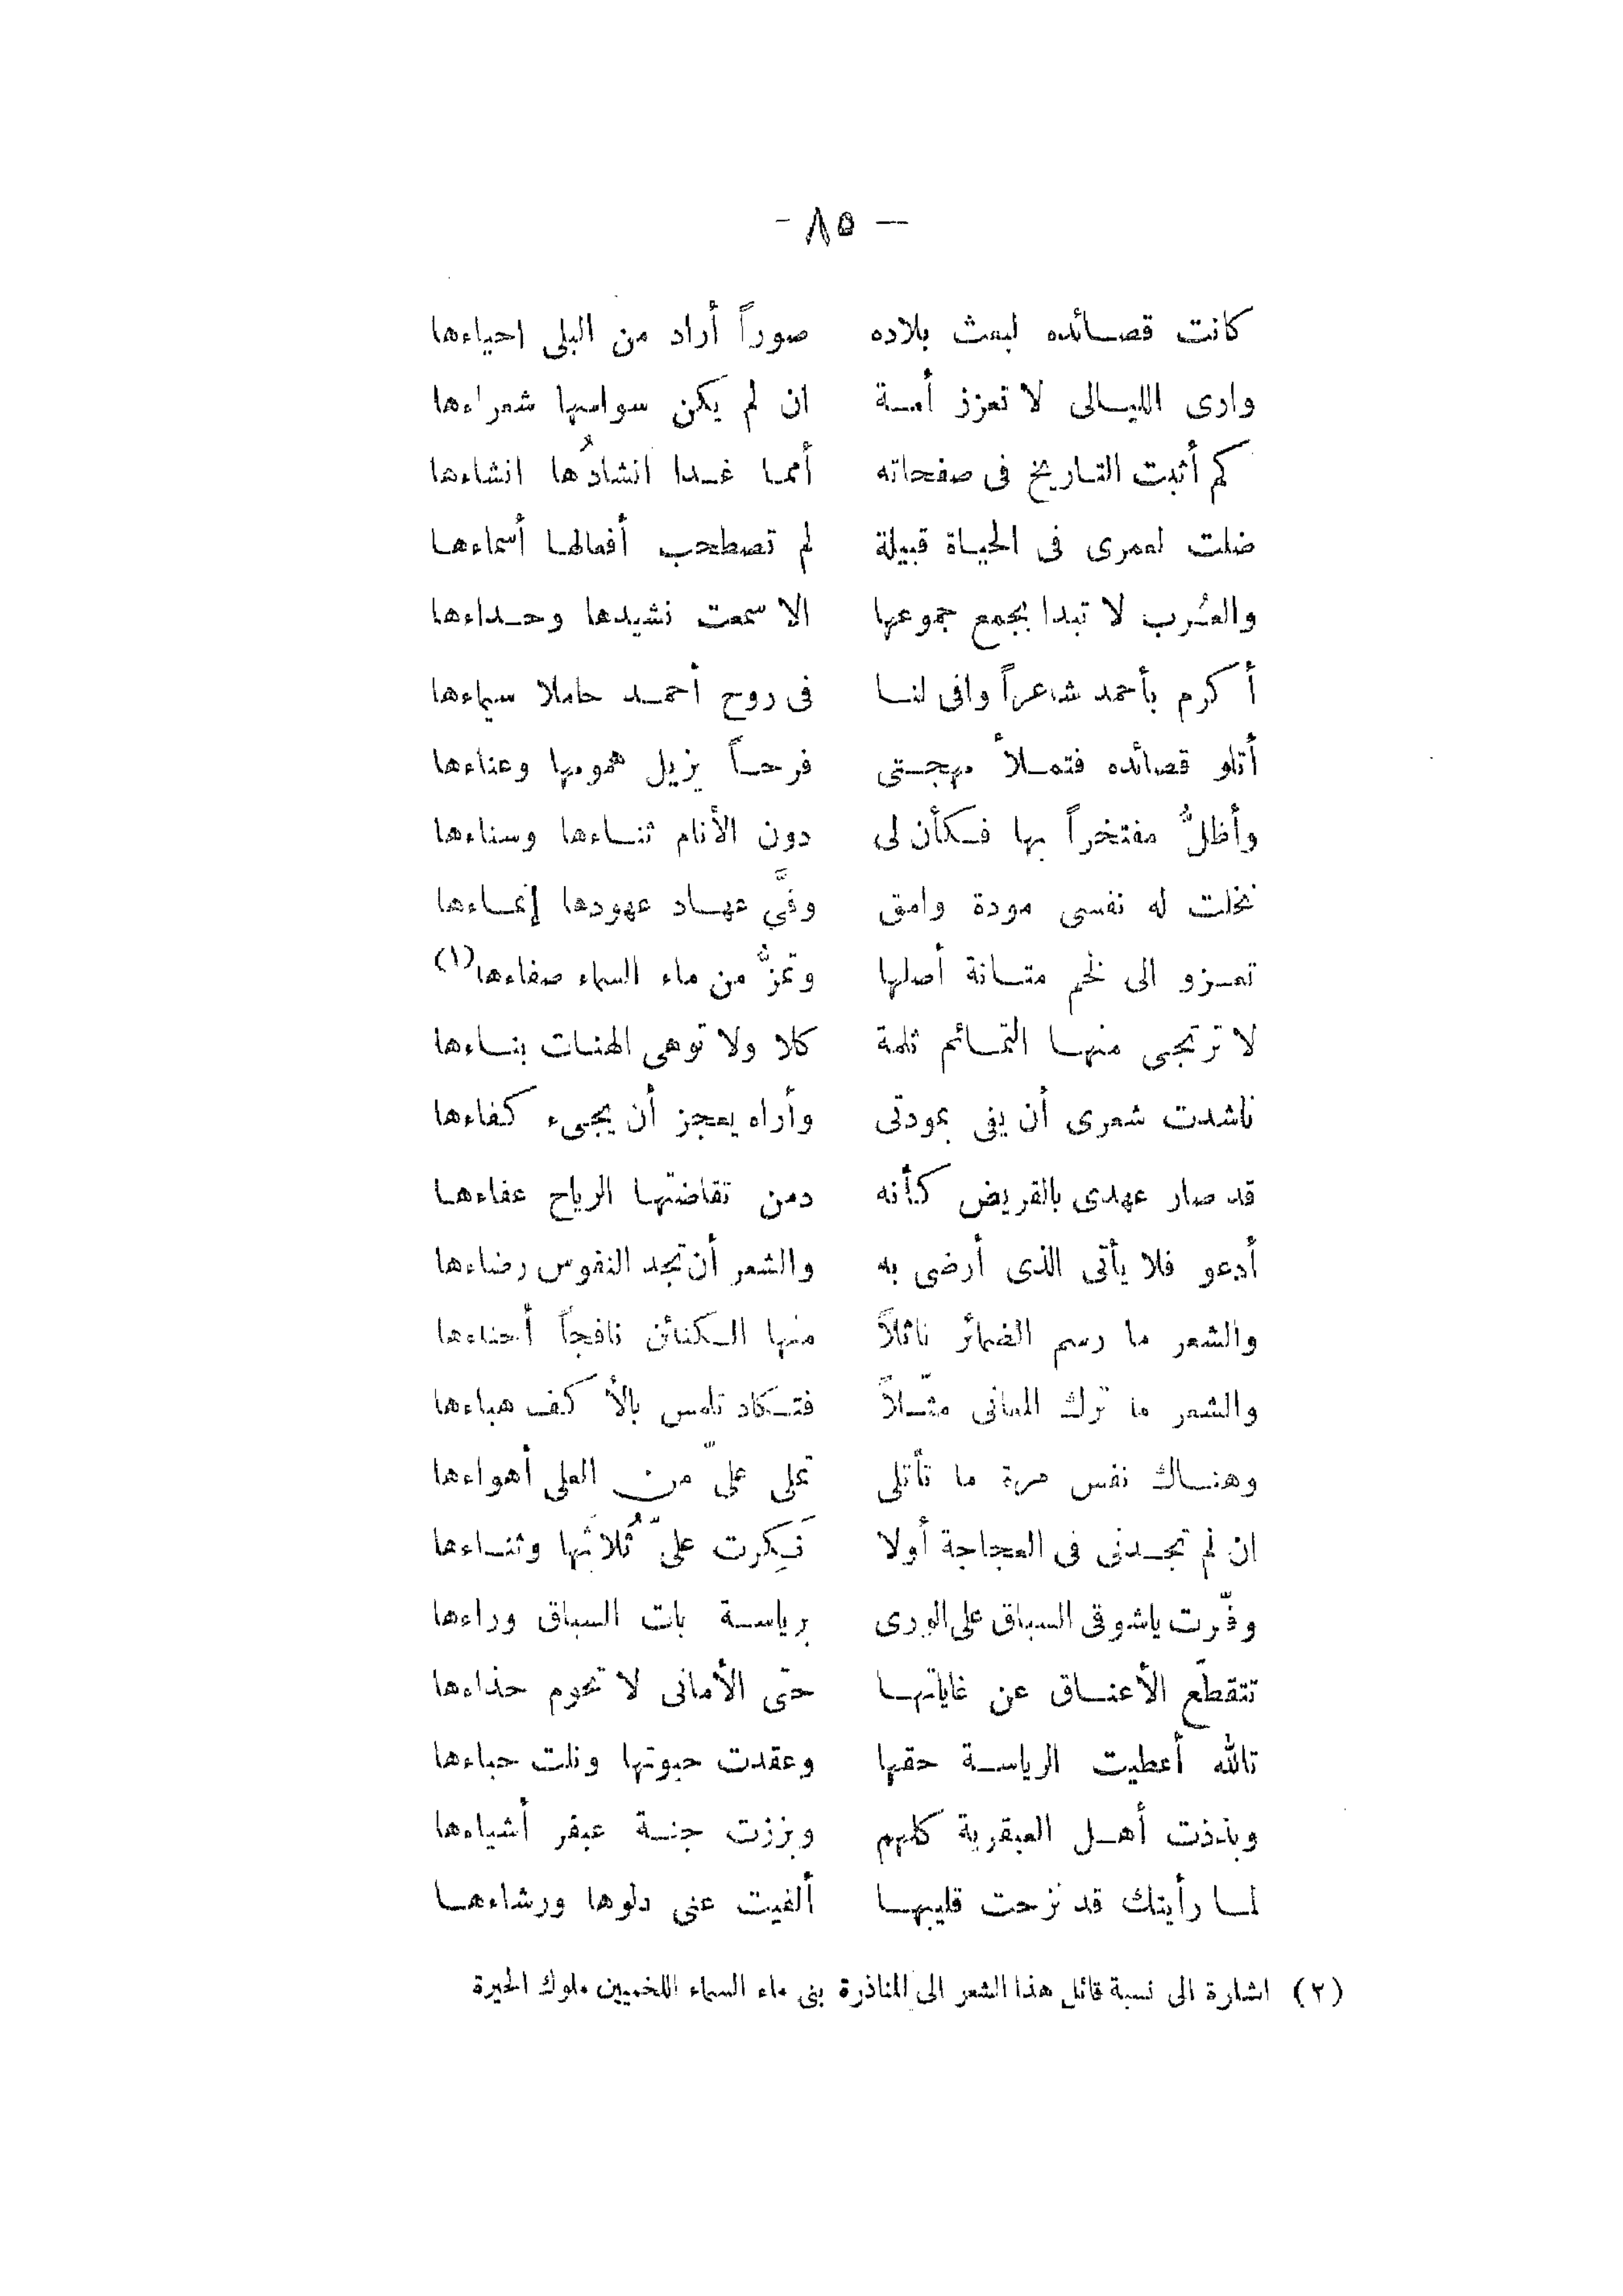 — ٨٥ -
كانت قصائده لبعث بلاده صوراً أراد من البلى احياءها
وارى الليالى لا تعزز أمة ان لم يكن سواسها شعراءها
كم أثبت التاريخ فى صفحاته أمما غدا انشادُها انشاءها
ضلت لعمرى فى الحياة قبيلة لم تصطحب أفعالها أسماءها
والعُرب لا تبدا بجمع جموعها الا سمعت نشيدها وحداءها
أكرم بأحمد شاعراً وافى لنا فى روح أحمد حاملا سيماءها
أتلو قصائده فتملأ مهجتى فرحاً يزيل همومها وعناءها
وأظلُّ مفتخراً بها فكأن لى دون الأنام ثناءها وسناءها
نخلت له نفسى مودة وامق وفَّى عهاد عهودها إنماءها
تعزو الى لخم متانة أصلها وتمزُّ من ماء السماء صفاءها (١)
لا ترتجى منها التمائم ثلمة كلا ولا توهى الهنات بناءها
ناشدت شعرى أن يفى بمودتى وأراه يعجز أن يجىء كفاءها
قد صار عهدى بالقريض كأنه دمن تقاضتها الرياح عفاءها
أدعو فلا يأتى الذى أرضى به والشعر أن تجد النفوس رضاءها
والشعر ما رسم الضمائر ناثلاً منها الكنائن نافجاً أحناءها
والشعر ما ترك المعانى مثّلاً فتكاد تلمس بالأكف هباءها
وهناك نفس مرة ما تأتلى تملى علىّ من العلى أهواءها
ان لم تجدنى فى العجاجة أولا نَكِرت علىّ ثُلاثَها وثناءها
وفّرت ياشوقى السباق على الورى برياسة بات السباق وراءها
تتقطّع الأعناق عن غاياتها حتى الأمانى لا تحوم حذاءها
تالله أعطيت الرياسة حقها وعقدت حبوتها ونلت حباءها
وبذذت أهل العبقرية كلهم وبززت جنة عبقر أشياءها
لما رأيتك قد نزحت قليبها ألفيت عنى دلوها ورشاءها
(٢) اشارة الى نسبة قائل هذا الشعر الى المناذرة بنى ماء السماء اللخميين ملوك الحيرة